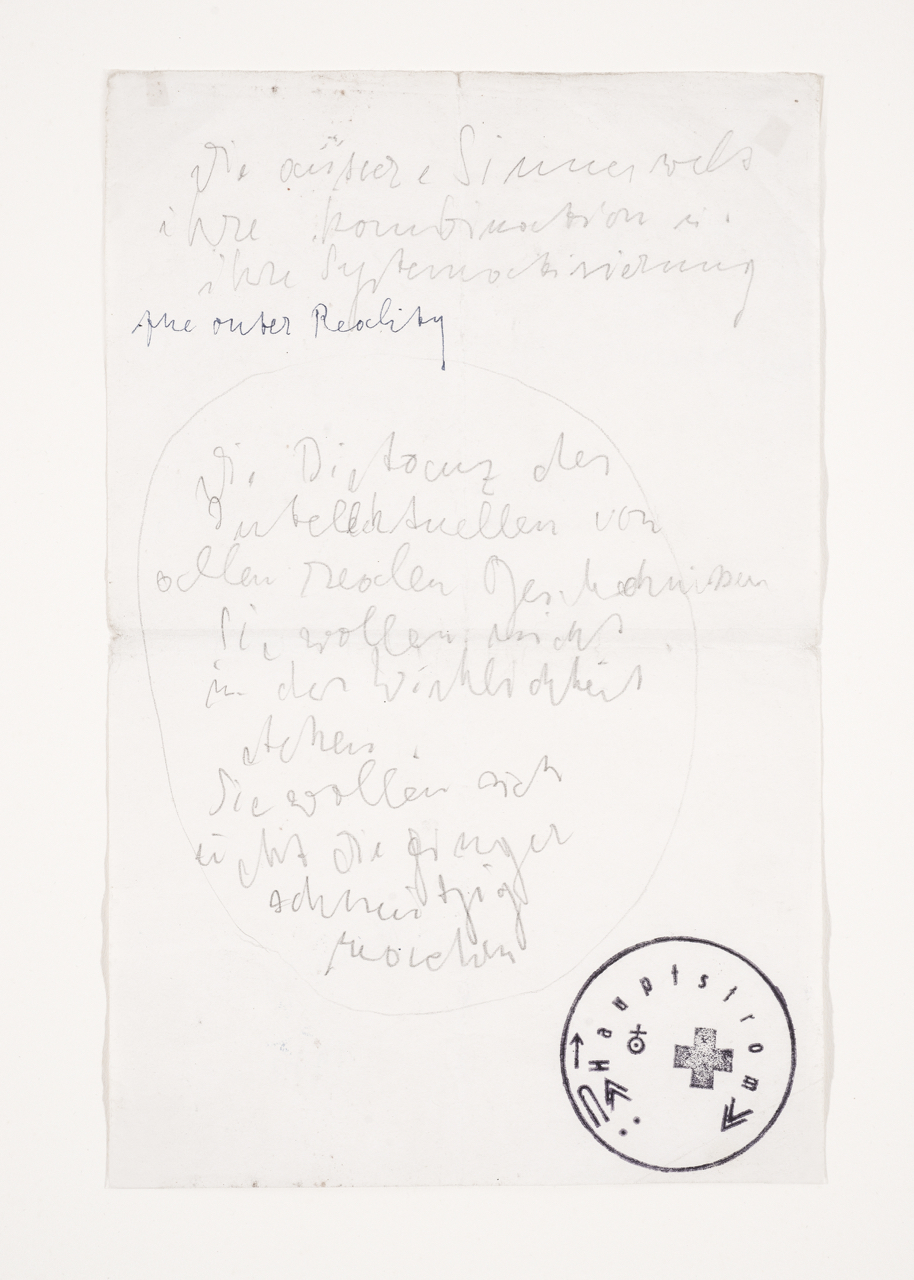 Die äussere Sinneswelt
ihre Kombination u.
ihre Systematisierung
the outer Reality
Die Distanz des
Intellektuellen von
allen realen Geschehnissen
Sie wollen nicht
in der Wirklichkeit
stehen.
Sie wollen sich
nicht die Finger
schmutzig
machen
Hauptstrom